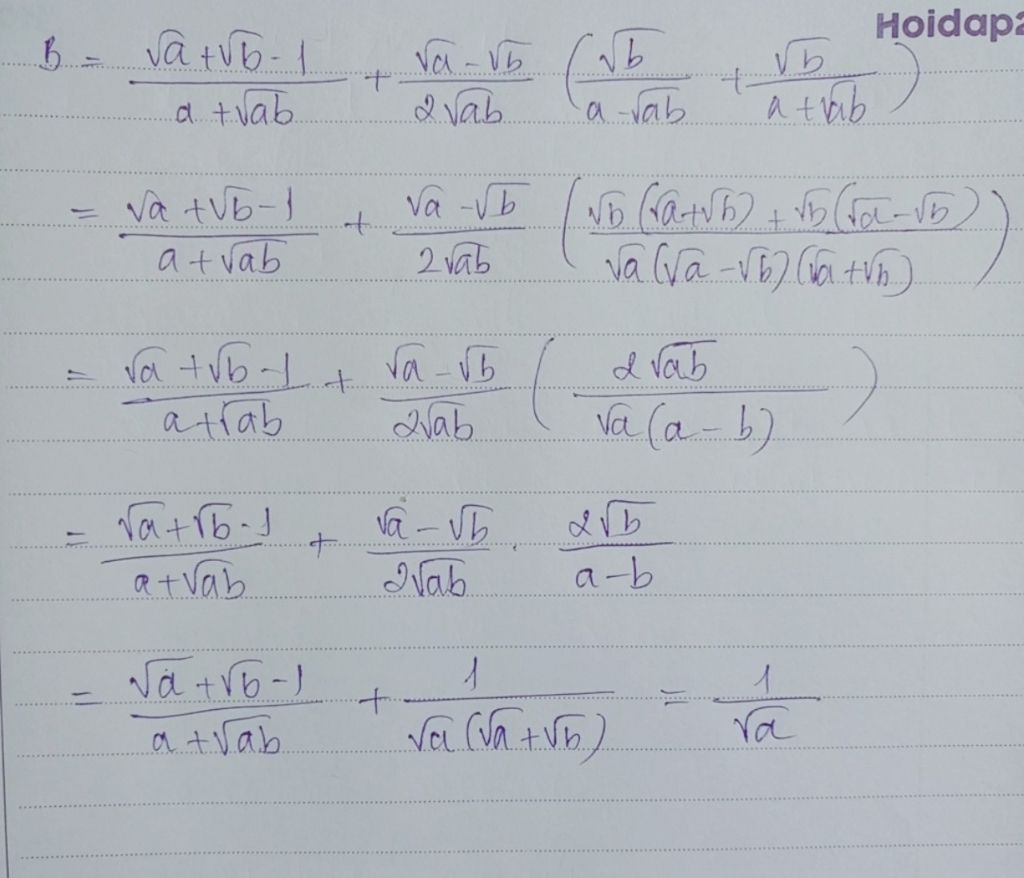 Hoidap2
B = (√a + √b - 1)/(a + √ab) + (√a - √b)/(2√ab) (√b/(a - √ab) + √b/(a + √ab))
= (√a + √b - 1)/(a + √ab) + (√a - √b)/(2√ab) ((√b(√a + √b) + √b(√a - √b))/(√a(√a - √b)(√a + √b)))
= (√a + √b - 1)/(a + √ab) + (√a - √b)/(2√ab) (2√ab/(√a(a - b)))
= (√a + √b - 1)/(a + √ab) + (√a - √b)/(2√ab) . 2√b/(a - b)
= (√a + √b - 1)/(a + √ab) + 1/(√a(√a + √b)) = 1/√a